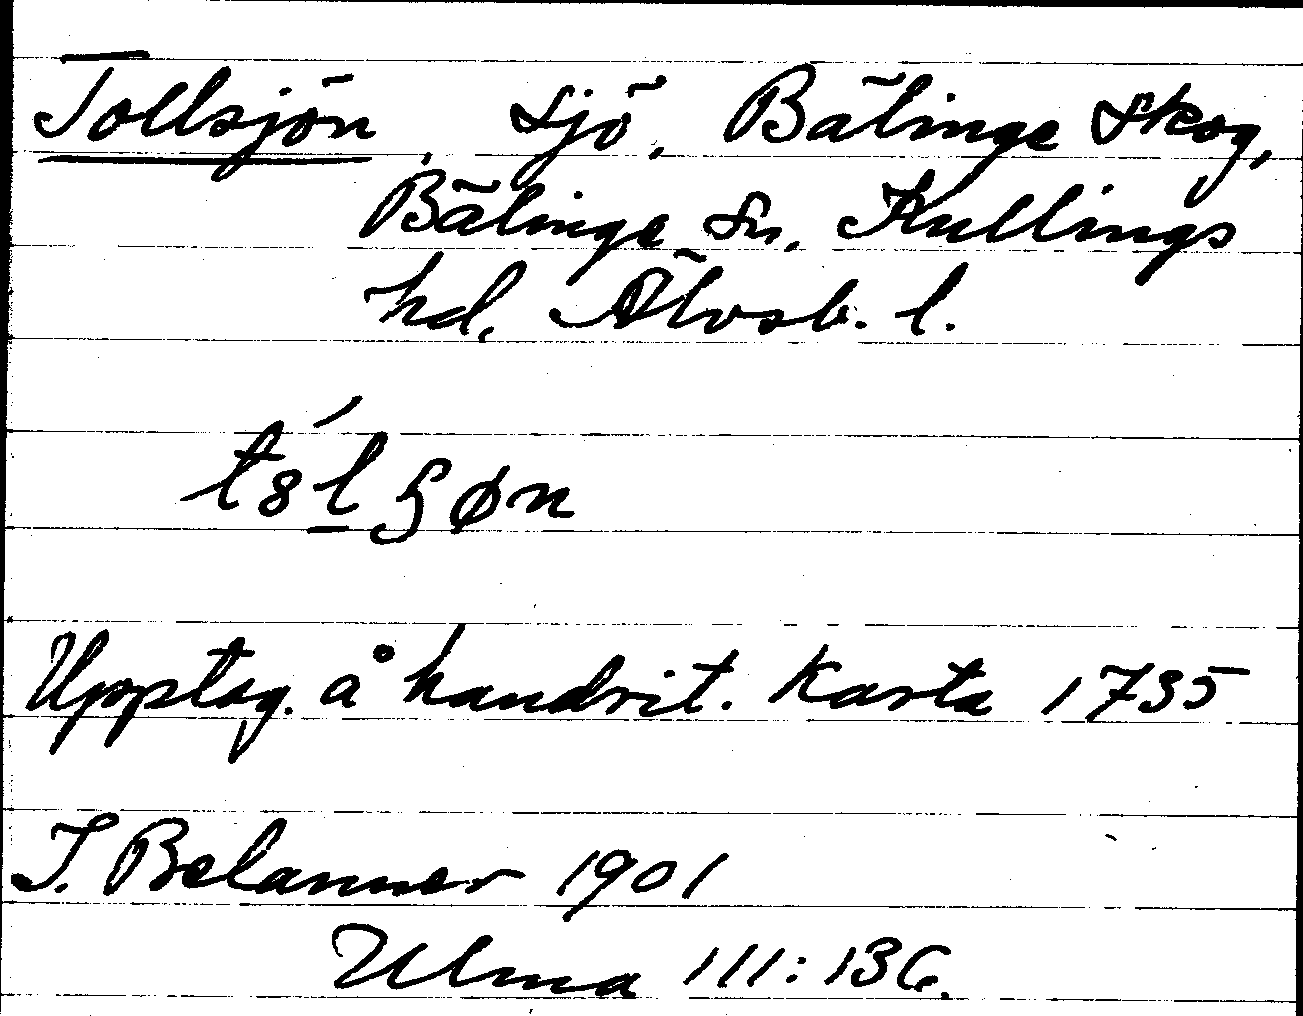 Tollsjön, sjö, Bälinge Skog,
Bälinge sn. Kullings
hd. Älvsb. l.
Upptag. å handrit. Karta 1735
1901
Ulma 111:136.